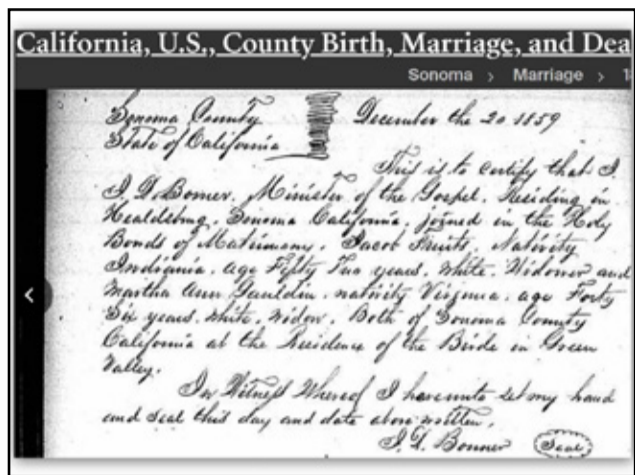 California, U.S., County Birth, Marriage, and Dea
Sonoma > Marriage > 1
Sonoma County December the 20 1859
State of California
This is to certify that I.
J. D. Bonner. Minister of the Gospel. Residing in
Healdsburg. Sonoma California. joined in the Holy
Bonds of Matrimony. Jacob Fruits. Nativity
Indiania. age Fifty Two years. White. Widower and
Martha Ann Gauldin. nativity Virginia. age Forty
Six years. White. Widow. Both of Sonoma County
California at the Residence of the Bride in Green
Valley.
In Witness Whereof I hereunto set my hand
and seal this day and date above written.
J. D. Bonner Seal